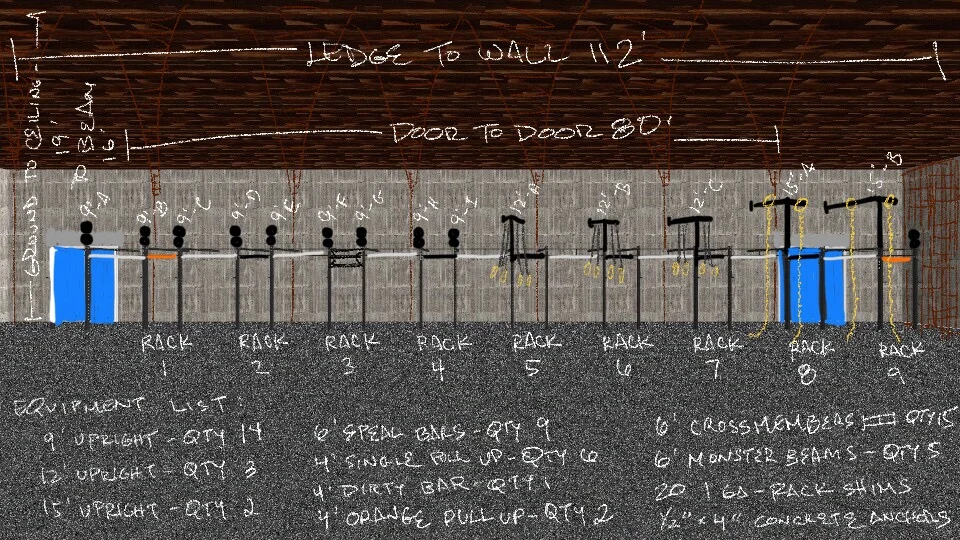 LEDGE TO WALL 112'
GROUND TO CEILING - 19'
TO BEAM 16'
DOOR TO DOOR 80'
9'-A
9'-B
9'-C
9'-D
9'-E
9'-F
9'-G
9'-H
9'-I
12'-A
12'-B
12'-C
15'-A
15'-B
RACK 1
RACK 2
RACK 3
RACK 4
RACK 5
RACK 6
RACK 7
RACK 8
RACK 9
EQUIPMENT LIST:
9' UPRIGHT - QTY 14
12' UPRIGHT - QTY 3
15' UPRIGHT - QTY 2
6' SPEAL BARS - QTY 9
4' SINGLE PULL UP - QTY 6
4' DIRTY BAR - QTY 1
4' ORANGE PULL UP - QTY 2
6' CROSSMEMBERS QTY 15
6' MONSTER BEAMS - QTY 5
20 1 GA - RACK SHIMS
1/2" x 4" CONCRETE ANCHORS